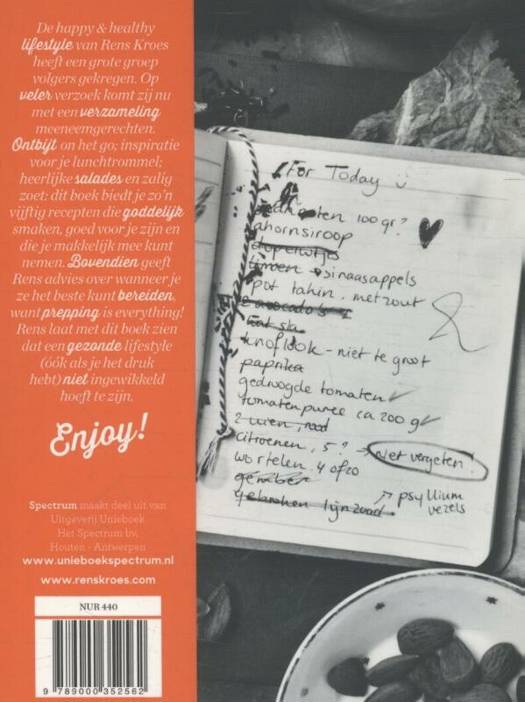 De happy & healthy
lifestyle van Rens Kroes
heeft een grote groep
volgers gekregen. Op
veler verzoek komt zij nu
met een verzameling
meeneemgerechten.
Ontbijt on the go; inspiratie
voor je lunchtrommel;
heerlijke salades en zalig
zoet: dit boek biedt je zo'n
vijftig recepten die goddelijk
smaken, goed voor je zijn en
die je makkelijk mee kunt
nemen. Bovendien geeft
Rens advies over wanneer je
ze het beste kunt bereiden,
want prepping is everything!
Rens laat met dit boek zien
dat een gezonde lifestyle
(óók als je het druk
hebt) niet ingewikkeld
hoeft te zijn.
Enjoy!
Spectrum maakt deel uit van
Uitgeverij Unieboek
Het Spectrum bv,
Houten - Antwerpen
www.unieboekspectrum.nl
www.renskroes.com
NUR 440
9 789000 352562
For Today
100 gr?
ahornsiroop
sinaasappels
pot tahin. met zout
2 avocado's
knoflook - niet te groot
paprika
gedroogde tomaten
tomatenpuree ca 200 g
2 uien, rood
citroenen, 5? → niet vergeten!
wortelen. 4 of zo
gember
gebroken lijnzaad
psyllium
vezels